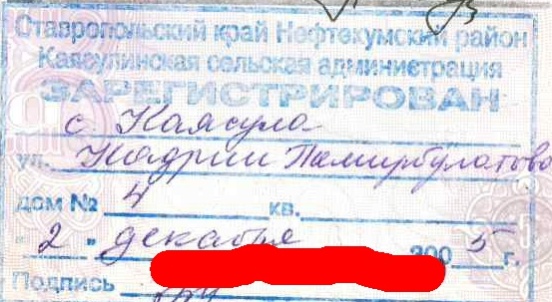 Ставропольский край Нефтекумский район
Каясулинская сельская администрация
ЗАРЕГИСТРИРОВАН
с Каясула
ул. Кадрии Темирбулатова
дом № 4 кв.
" 2 " декабря 2005 г.
Подпись